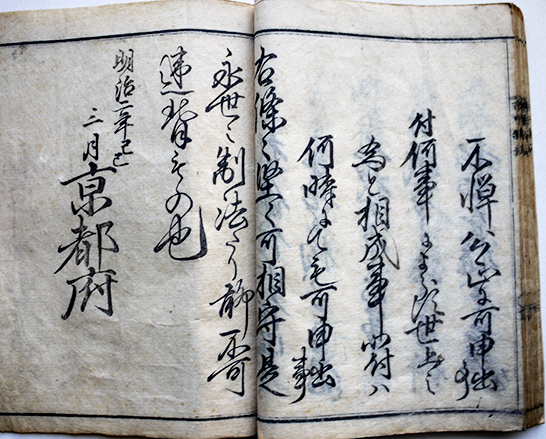 不憚公然可申出候
付何事によらず世上之
為と相成事心付ハ
何時にても可申出事
右條々堅ク可相守是
永世之制法たり聊不可
違背もの也
明治二年己巳
三月
京都府